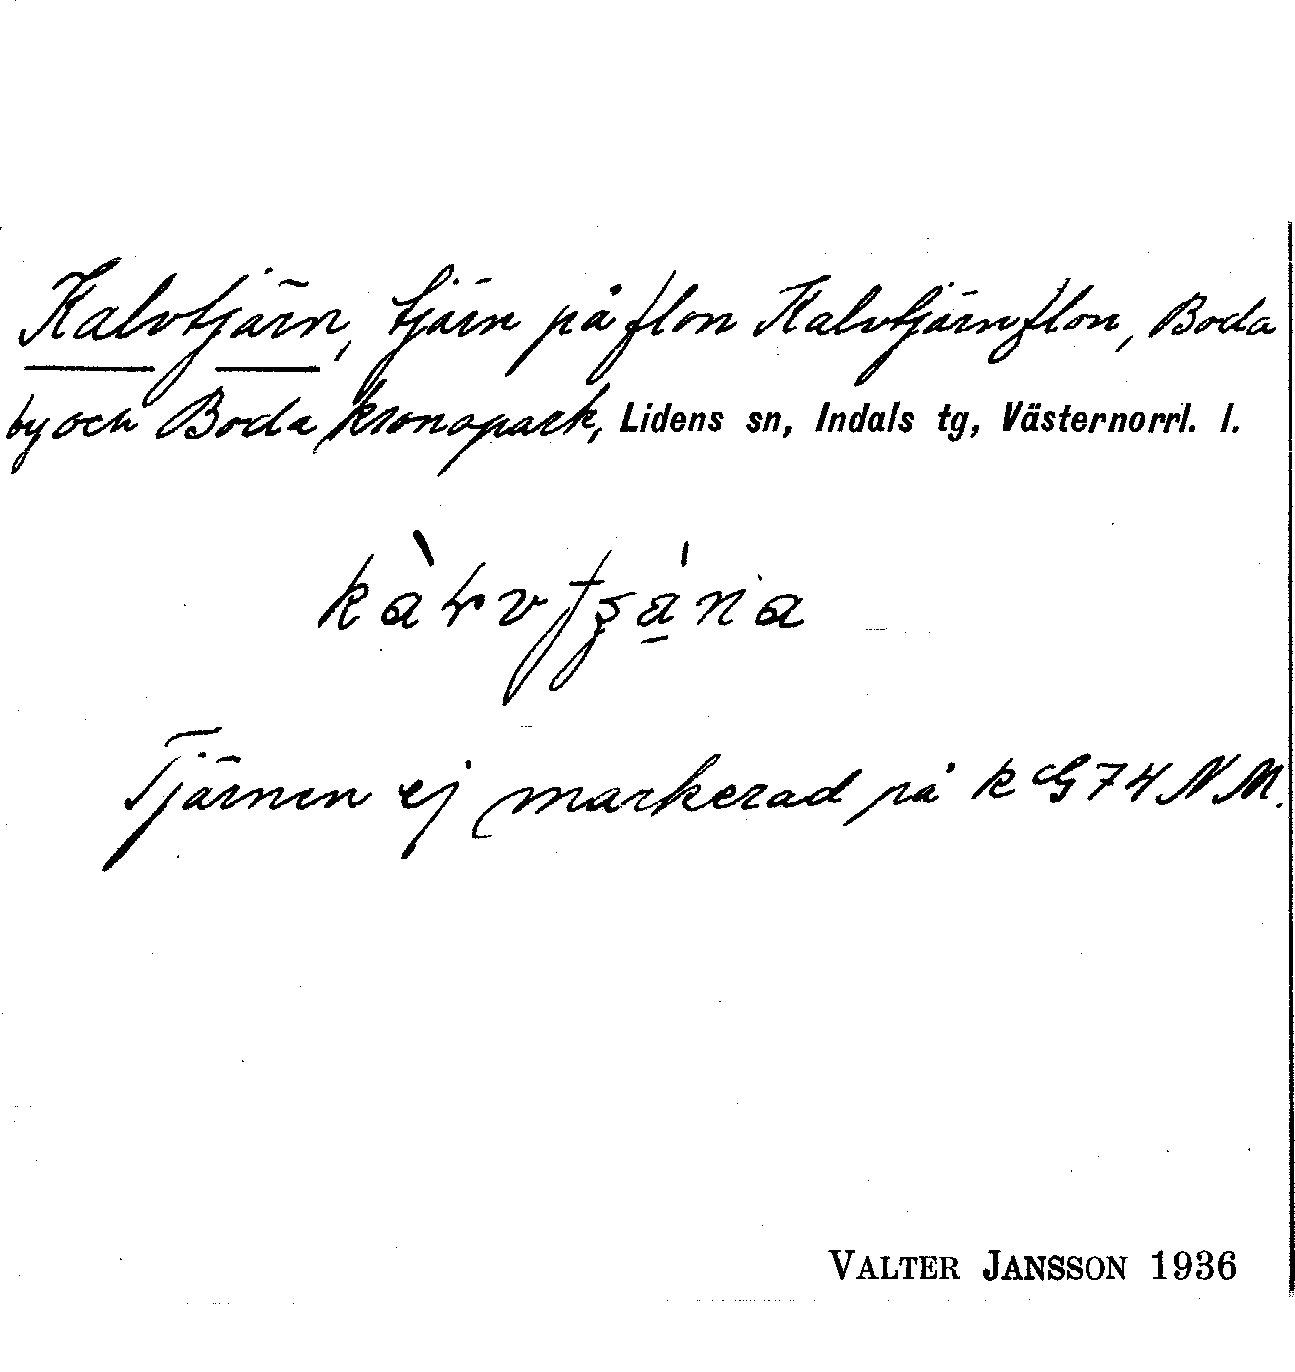 Kalvtjärn, tjärn på flon Kalvtjärnflon, Boda
by och Boda kronopark, Lidens sn, Indals tg, Västernorrl. l.
Tjärnen ej markerad på k G 74 NM.
VALTER JANSSON 1936